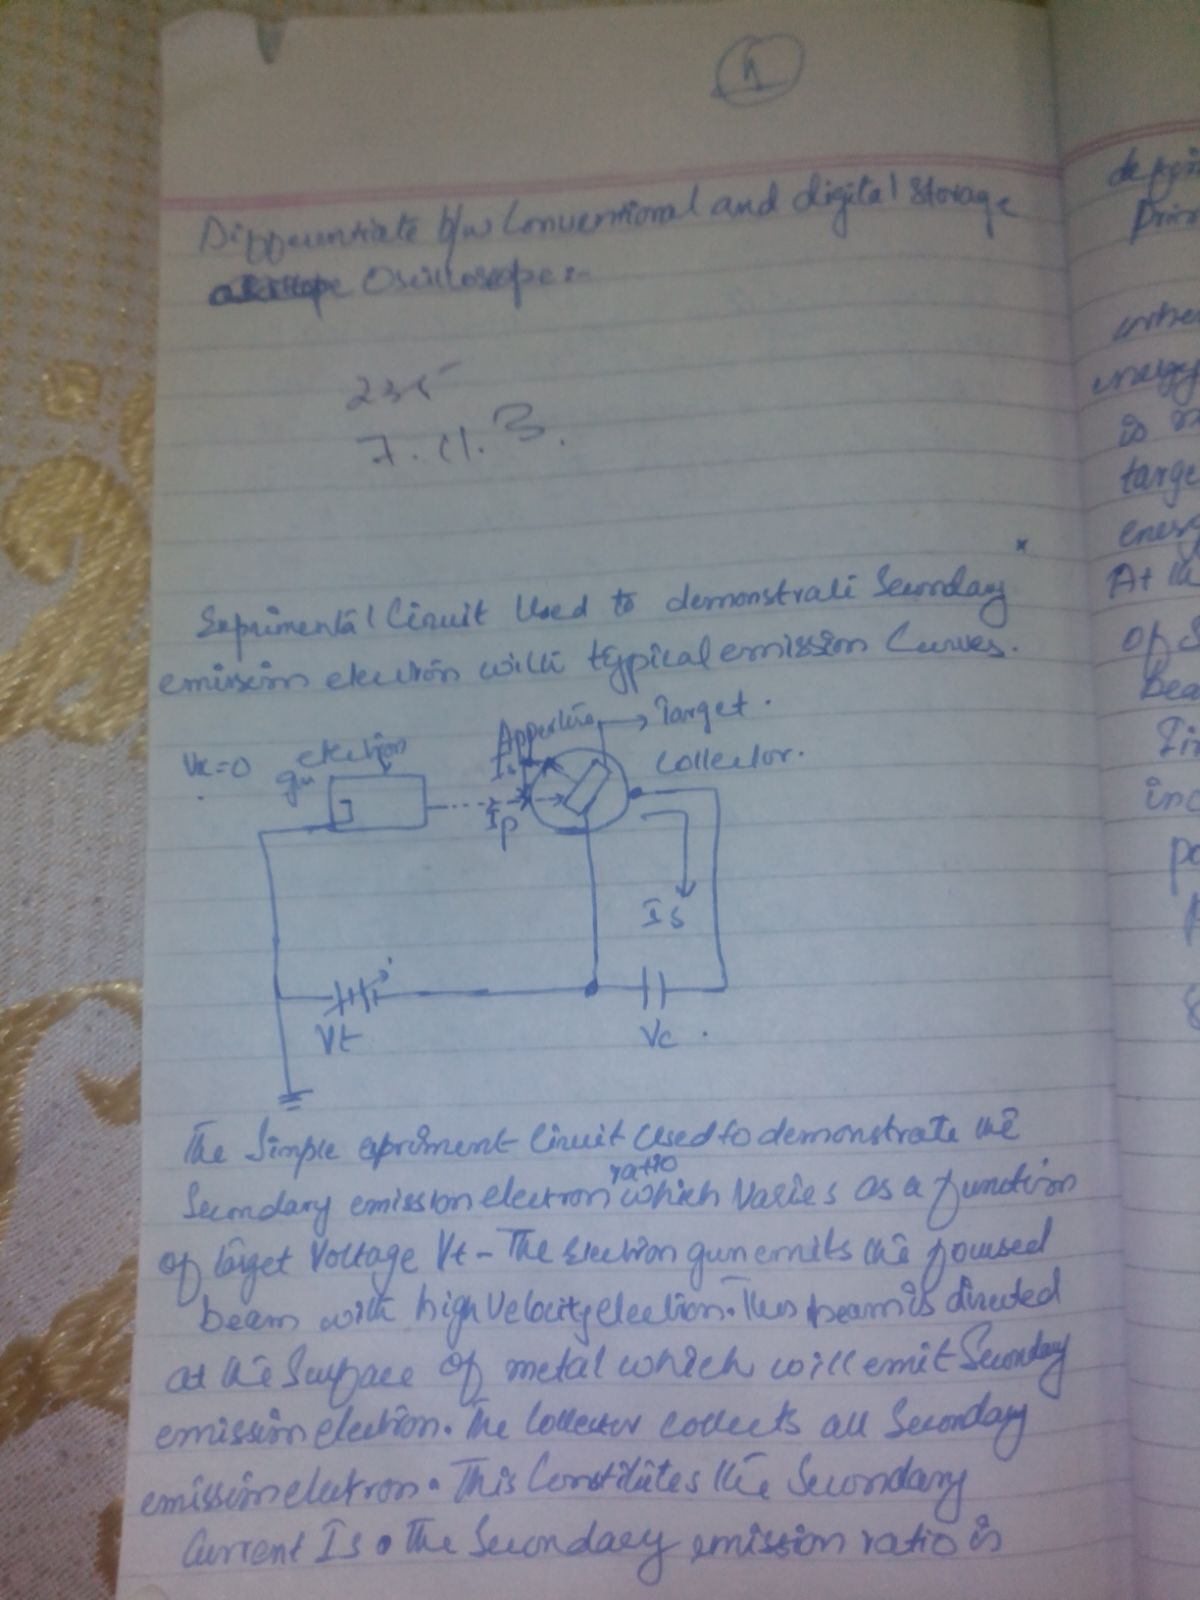 1
Differentiate b/w Conventional and digital storage
Oscilloscope:-
235
7.11.3.
Exprimental Circuit Used to demonstrate Secondary
emission electron with typical emission Curves.
Apperture
Target.
Vk=0
electron
gun
Is
collector.
Ip
Is
Vt
Vc.
The Simple epriment Circuit Used to demonstrate the
Secondary emission electron ratio which Varies as a function
of target Voltage Vt - The Electron gun emits the focused
beam with high Velocity electron. This beam is directed
at the Surface of metal which will emit Secondary
emission electron. The Collector collects all Secondary
emission electron. This Constitutes the Secondary
Current Is. The Secondary emission ratio is
defin
Prim
wher
energy
is
targe
energ
At the
of S
bea
inc
po